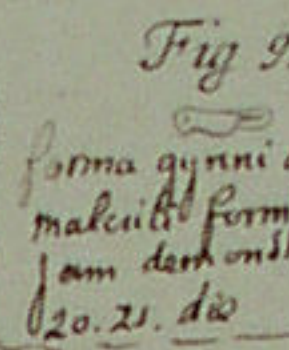 Fig 9
forma gyrini
malculi form
jam demonst
20. 21. die